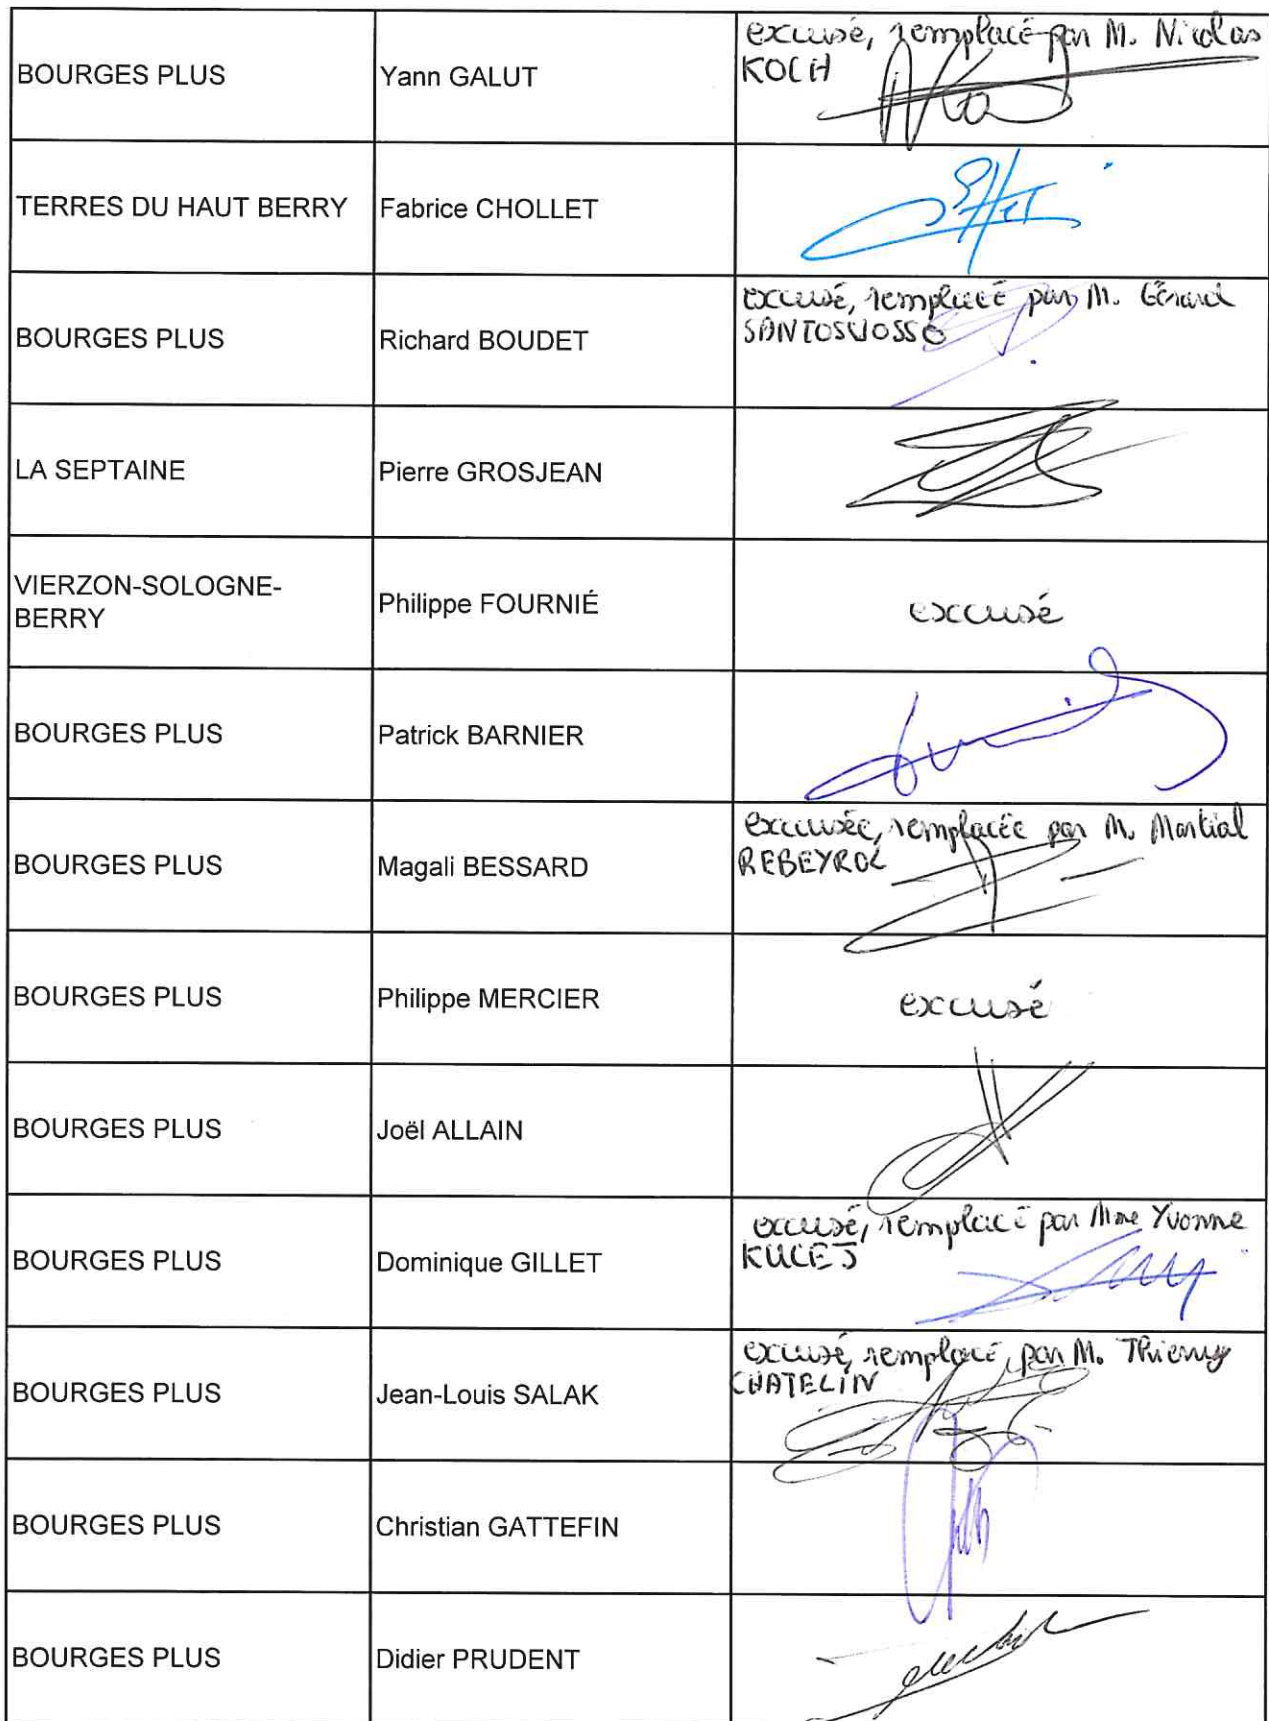 BOURGES PLUS
Yann GALUT
excusé, remplacé par M. Nicolas
KOCH
TERRES DU HAUT BERRY
Fabrice CHOLLET
BOURGES PLUS
Richard BOUDET
excusé, remplacé par M. Gérard
SANTOSUOSSO
LA SEPTAINE
Pierre GROSJEAN
VIERZON-SOLOGNE-
BERRY
Philippe FOURNIÉ
excusé
BOURGES PLUS
Patrick BARNIER
BOURGES PLUS
Magali BESSARD
excusée, remplacée par M. Martial
REBEYROL
BOURGES PLUS
Philippe MERCIER
excusé
BOURGES PLUS
Joël ALLAIN
BOURGES PLUS
Dominique GILLET
excusé, remplacé par Mme Yvonne
KUCEJ
BOURGES PLUS
Jean-Louis SALAK
excusé, remplacé par M. Thierry
CHATELIN
BOURGES PLUS
Christian GATTEFIN
BOURGES PLUS
Didier PRUDENT